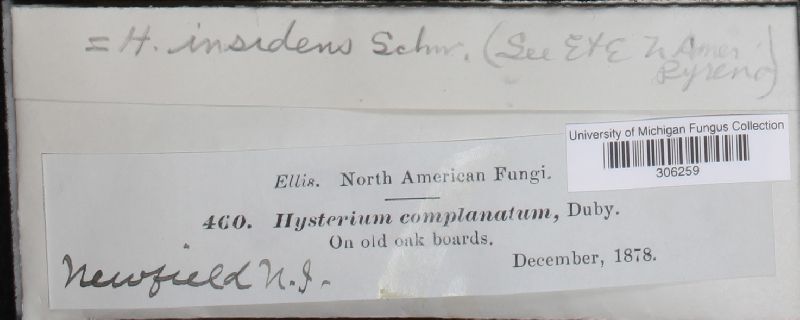 = H. insidens Schw. (See E & E N. Amer.
Pyreno)
University of Michigan Fungus Collection
306259
Ellis. North American Fungi.
460. Hysterium complanatum, Duby.
On old oak boards.
December, 1878.
Newfield N.J.